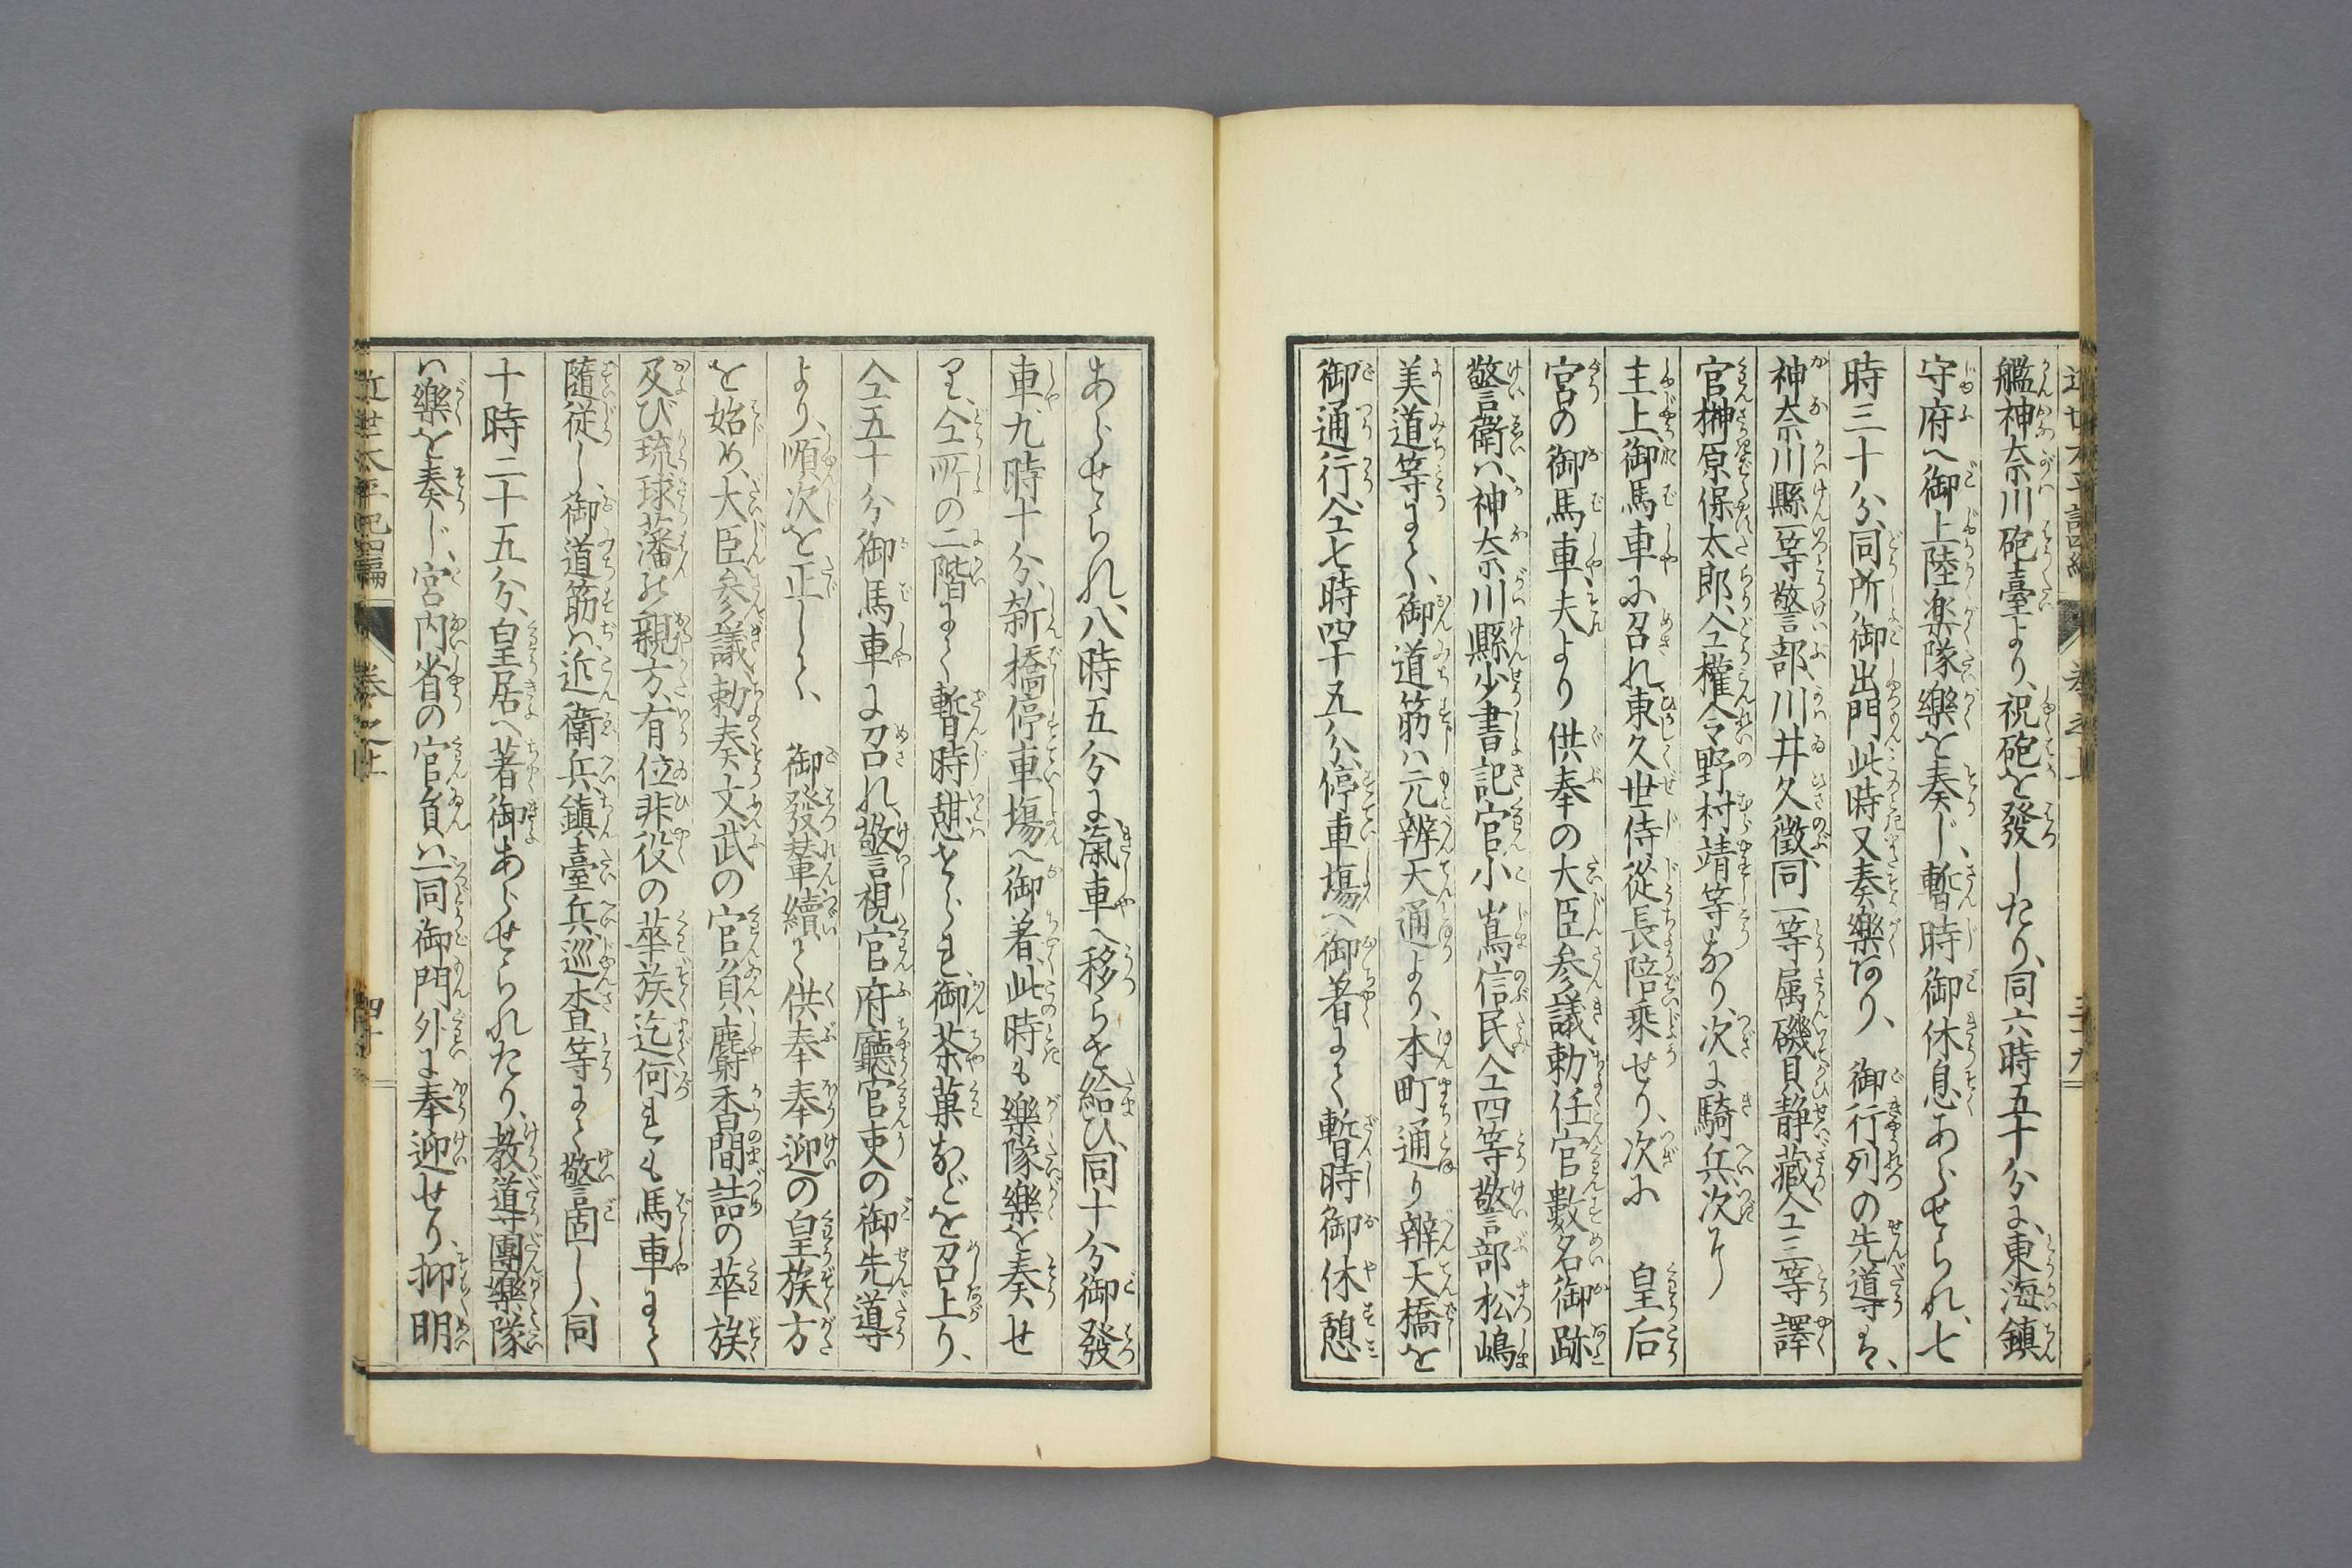 艦神奈川砲臺より、祝砲を發したり、同六時五十分に、東海鎮
守府へ御上陸楽隊樂を奏じ、暫時御休息あらせられ、七
時三十分、同所御出門此時又奏樂あり、　御行列の先導は、
神奈川縣一等警部川井久徴同一等属磯貝静蔵仝三等譯
官榊原保太郎、仝權令野村靖等なり、次に騎兵次に
主上御馬車に召れ東久世侍從長陪乗せり、次に　皇后
宮の御馬車、夫より供奉の大臣参議勅任官數名御跡
警衛は、神奈川縣少書記官小嶌信民仝四等警部松嶋
美道等にて、御道筋は元辨天通より、本町通り辨天橋を
御通行、仝七時四十五分、停車塲へ御著にて暫時御休憩
あらせられ、八時五分に滊車へ移らせ給ひ、同十分御發
車、九時十分、新橋停車塲へ御着、此時も樂隊樂を奏せ
り、仝所の二階にて暫時憩せられ、御茶菓などを召上り、
仝五十分御馬車に召れ、警視官府廳官吏の御先導
より、順次を正して、　御發輦續て供奉奉迎の皇族方
を始め、大臣、参議、勅奏文武の官員、麝香間詰の華族
及び琉球藩の親方、有位非役の華族迄何れも馬車にて
隨従し、御道筋は、近衛兵、鎮臺兵、巡査等にて警固し、同
十時二十五分、皇居へ著御あらせられたり、教導團樂隊
は樂を奏じ、宮内省の官員は一同御門外に奉迎せり、抑明
近世太平記四編　巻之上　四十